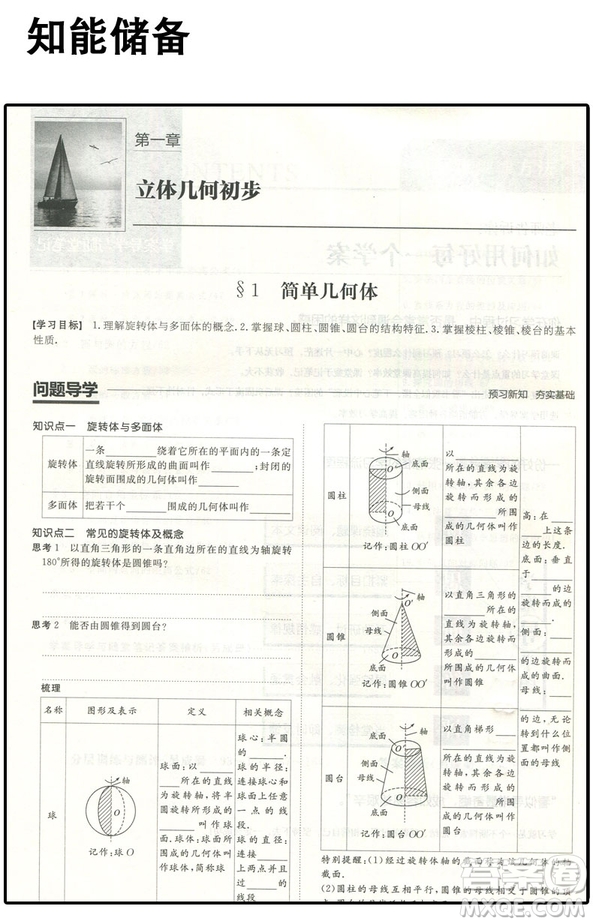 知能储备
第一章
立体几何初步
§1 简单几何体
【学习目标】 1.理解旋转体与多面体的概念.2.掌握球、圆柱、圆锥、圆台的结构特征.3.掌握棱柱、棱锥、棱台的基本
性质.
问题导学
预习新知 夯实基础
知识点一 旋转体与多面体
旋转体
一条____绕着它所在的平面内的一条定
直线旋转所形成的曲面叫作____;封闭的
旋转面围成的几何体叫作____
多面体
把若干个____围成的几何体叫作____
知识点二 常见的旋转体及概念
思考1 以直角三角形的一条直角边所在的直线为轴旋转
180°所得的旋转体是圆锥吗?
思考2 能否由圆锥得到圆台?
梳理
名称 图形及表示 定义 相关概念
球
O
记作:球O
球面:以____
____所在的直线
为旋转轴,将半
圆旋转所形成的
____叫作球面
球体:____
____所围成的几何
体叫作球体,简
称球
球心:半圆
的____
球的半径:
连接球心和
球面上任意
一点的线段
球的直径:
连接____
____上两点
并且过____
____的线段
圆柱
轴
底面
侧面
母线
底面
记作:圆柱OO′
以____
所在的直线为旋
转轴,其余各边
旋转而形成的
____
的几何体叫作
圆柱
圆锥
轴
侧面
母线
底面
记作:圆锥OO′
以直角三角形的
____
所在的直线为旋
转轴,其余各边
旋转而形成的
____
所围成的几何体
叫作圆锥
圆台
轴
底面
侧面
母线
底面
记作:圆台OO′
以直角梯形____
____
所在的直线为旋
转轴,其余各边
旋转而形成的
____
所围成的几何体
叫作圆台
高:在____
____上这条
边的长度.
底面:垂直
于____
____的边旋
转而成的
____.
侧面:____
____
的边旋转而
成的曲面.
母线:____
____
的边,无论
转到什么位
置都叫作侧
面的母线
特别提醒:(1)经过旋转体轴的截面
截面.
(2)圆柱的母线互相平行,圆锥的母线